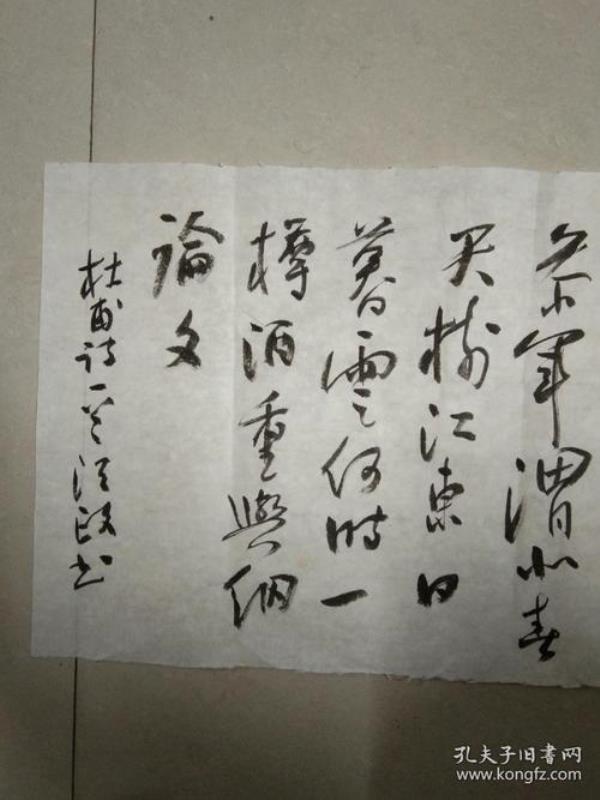 參軍渭北春
天樹江東日
暮雲何時一
樽酒重與細
論文
杜甫詩一首政書
孔夫子旧书网
www.kongfz.com